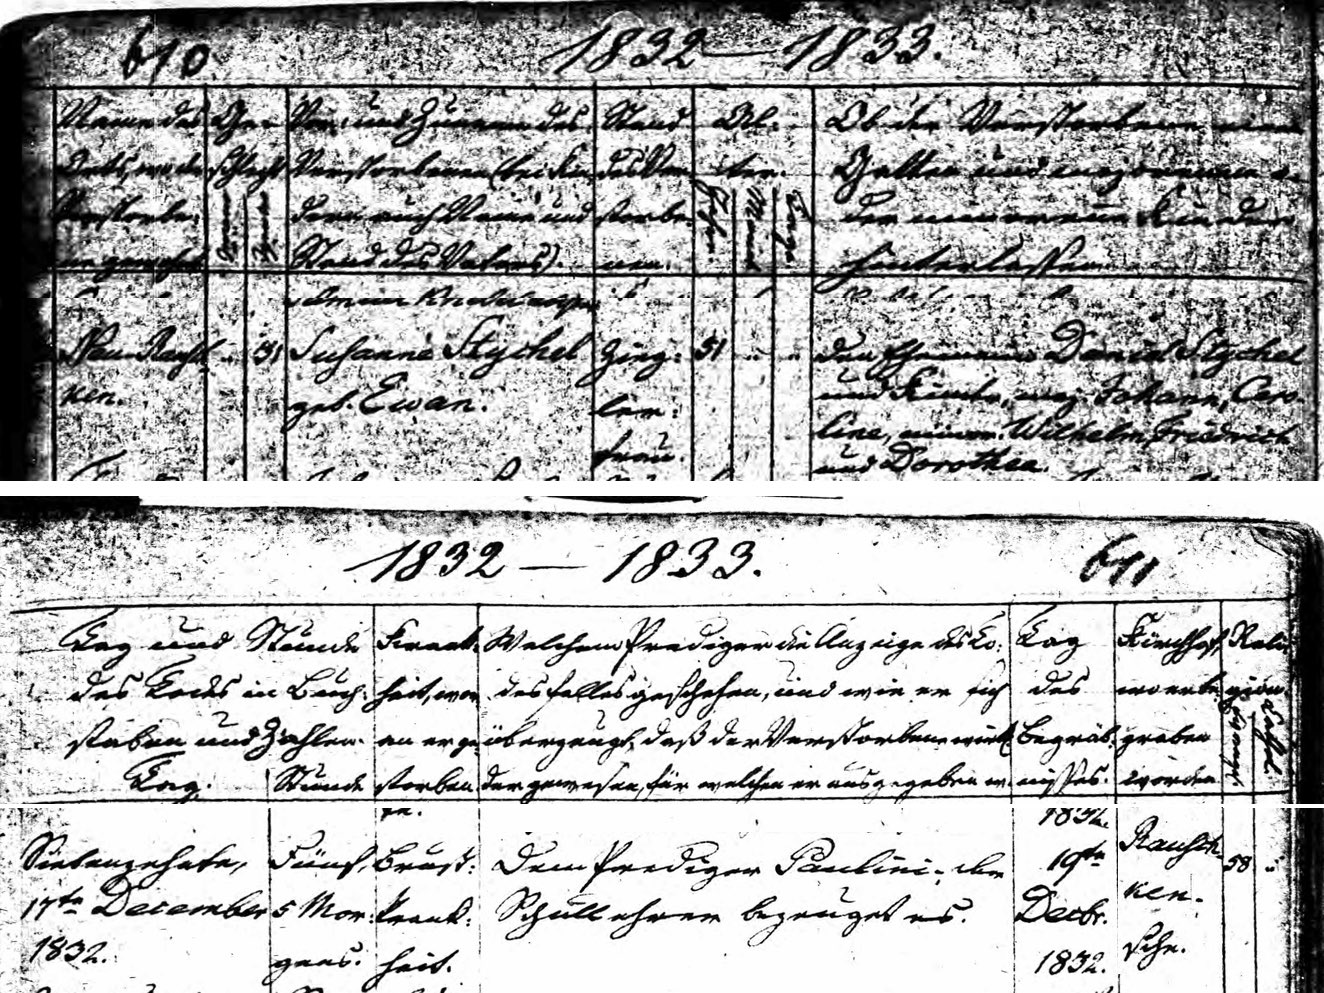 610.
1832 — 1833.
Name des
Orts, wo der
Verstorbe-
ne gewesen
Ge-
schlecht
Vor- und Zuname des
Verstorbenen (bei Kin-
dern auch Name und
Stand des Vaters).
Stand
des Ver-
storbe-
nen.
Al-
ter.
Jahre.
Monat
Tage.
Ob der Verstorbene einen
Gatten und majorenne o-
der minorenne Kinder
hinterlassen
Neu-Rausch-
ken.
31
Susanne Stychel
geb. Ewan.
Zieg-
ler-
frau.
51
den Ehemann Daniel Stychel
und Kinder, maj. Johann, Caro-
line, minor. Wilhelm, Friedrich
und Dorothea.
1832 — 1833.
611
Tag und Stunde
des Todes in Buch-
staben und Zahlen.
Tag.
Stunde
Krank-
heit, wor-
an er ge-
storben
Welchem Prediger die Anzeige des To-
desfalles geschehen, und wie er sich
überzeugt, daß der Verstorbene wirk-
der gewesen, für welchen er ausgegeben w.
Tag
des
Begräb-
nisses.
Kirchhof,
wo er be-
graben
worden
Reli-
gion.
1832.
Siebenzehnte,
17te December
1832.
Fünf,
5 Mor-
gens.
Brust-
krank-
heit.
Dem Prediger Paulini; der
Schullehrer bezeuget es.
19te
Decbr.
1832.
Rausch-
ken-
sche.
58